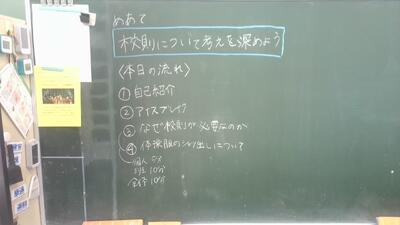 めあて
校則について考えを深めよう
〈本日の流れ〉
① 自己紹介
② アイスブレイク
③ なぜ校則が必要なのか
④ 体操服のシャツ出しについて
個人 5分
班 10分
全体 10分